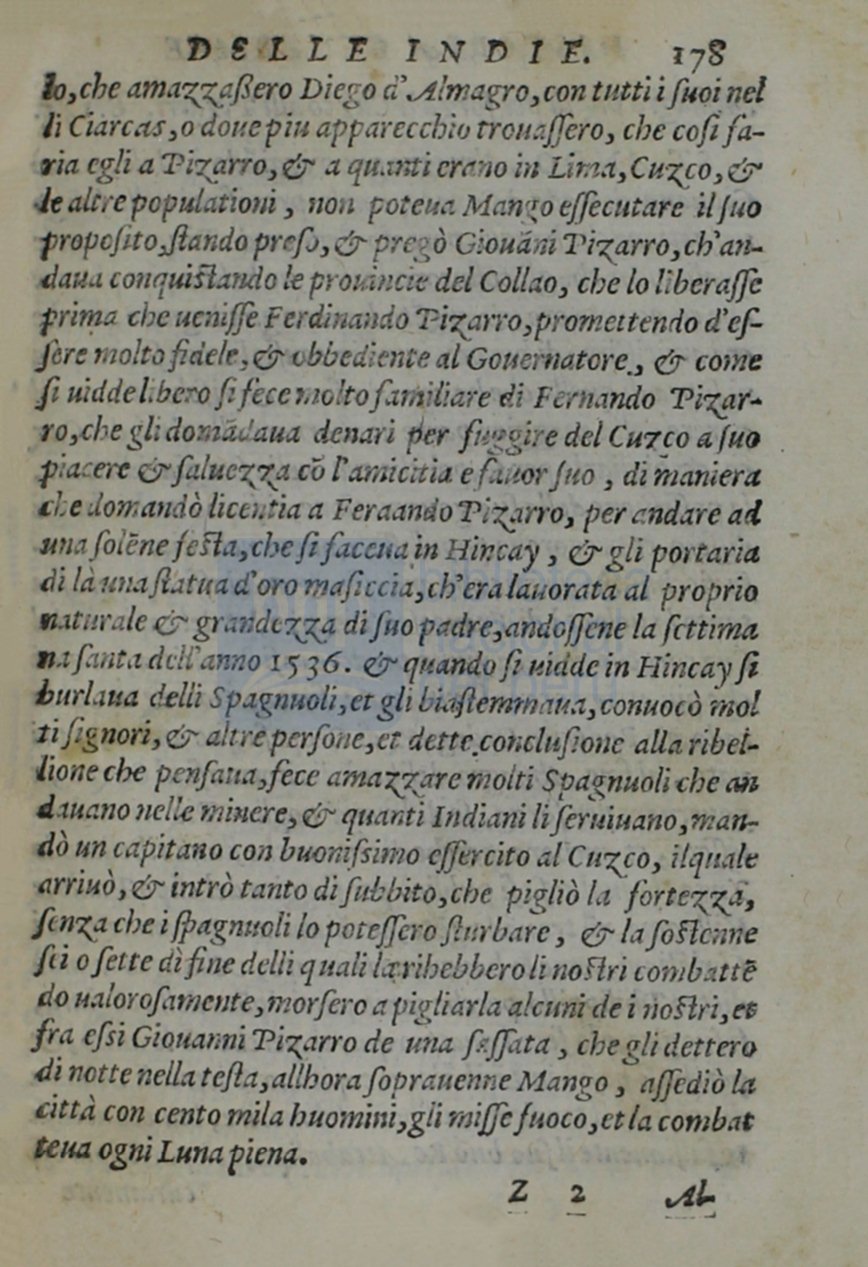 DELLE INDIE. 178
lo, che amazzaßero Diego d'Almagro, con tutti i ſuoi nel
li Ciarcas, o doue piu apparecchio trouaſſero, che coſi fa-
ria egli a Pizarro, & a quanti erano in Lima, Cuzco, &
le altre populationi, non poteua Mango eſſecutare il ſuo
propoſito, ſtando preſo, & pregò Giouãni Pizarro, ch'an-
daua conquiſtando le prouincie del Collao, che lo liberaſſe
prima che ueniſſe Ferdinando Pizarro, promettendo d'eſ-
ſere molto fidele, & obbediente al Gouernatore, & come
ſi uidde libero ſi fece molto familiare di Fernando Pizar-
ro, che gli domãdaua denari per fuggire del Cuzco a ſuo
piacere & ſaluezza cõ l'amicitia e fauor ſuo, di maniera
che domandò licentia a Feraando Pizarro, per andare ad
una ſolẽne feſta, che ſi faceua in Hincay, & gli portaria
di là una ſtatua d'oro maſiccia, ch'era lauorata al proprio
naturale & grandezza di ſuo padre, andoſſene la ſettima
na ſanta dell'anno 1536. & quando ſi uidde in Hincay ſi
burlaua delli Spagnuoli, et gli biaſtemmaua, conuocò mol
ti ſignori, & altre perſone, et dette concluſione alla ribel-
lione che penſaua, fece amazzare molti Spagnuoli che an
dauano nelle minere, & quanti Indiani li ſeruiuano, man-
dò un capitano con buoniſsimo eſſercito al Cuzco, ilquale
arriuò, & intrò tanto di ſubbito, che pigliò la fortezza,
ſenza che i ſpagnuoli lo poteſſero ſturbare, & la ſoſtenne
ſei o ſette dì fine delli quali la ribebbero li noſtri combattẽ
do ualoroſamente, morſero a pigliarla alcuni de i noſtri, et
fra eſsi Giouanni Pizarro de una ſaſſata, che gli dettero
di notte nella teſta, allhora ſoprauenne Mango, aſſediò la
città con cento mila huomini, gli miſſe fuoco, et la combat
teua ogni Luna piena.
Z 2 Al